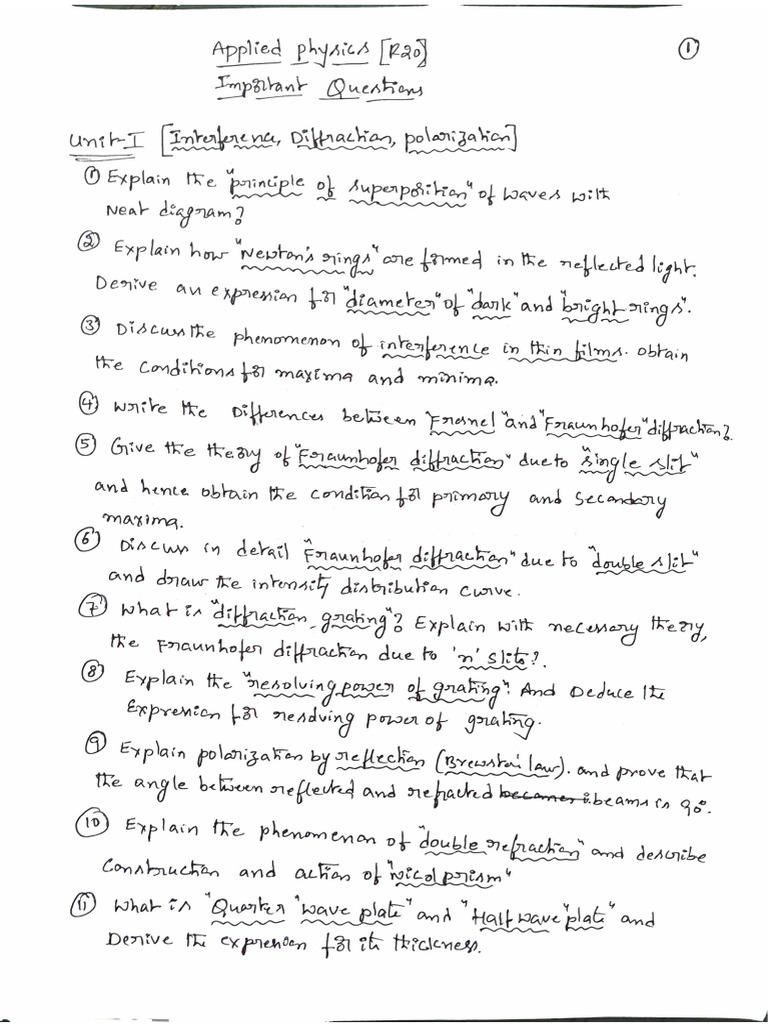 Applied physics [R20]
①
Important Questions
Unit-I [Interference, Diffraction, polarization]
① Explain the "principle of superposition" of waves with
Neat diagram?
② Explain how "Newton's rings" are formed in the reflected light.
Derive an expression for "diameter" of "dark" and "bright rings".
③ Discuss the phenomenon of interference in thin films. obtain
the conditions for maxima and minima.
④ Write the Differences between "Fresnel" and "Fraunhofer" diffraction?
⑤ Give the theory of "Fraunhofer diffraction" due to "single slit"
and hence obtain the condition for primary and secondary
maxima.
⑥ Discuss in detail "Fraunhofer diffraction" due to "double slit"
and draw the intensity distribution curve.
⑦ What is "diffraction grating"? Explain with necessary theory,
the Fraunhofer diffraction due to 'n' slits?.
⑧ Explain the "resolving power of grating". And Deduce the
Expression for resolving power of grating.
⑨ Explain polarization by reflection (Brewster's law). and prove that
the angle between reflected and refracted beams is 90°.
⑩ Explain the phenomenon of "double refraction" and describe
Construction and action of "nicol prism"
⑪ What is "Quarter "wave plate" and "Half wave "plate" and
Derive the expression for its thickness.